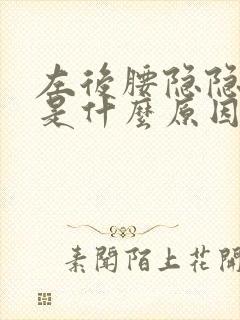 左後腰隐隐
是什麼原因
素聞陌上花開